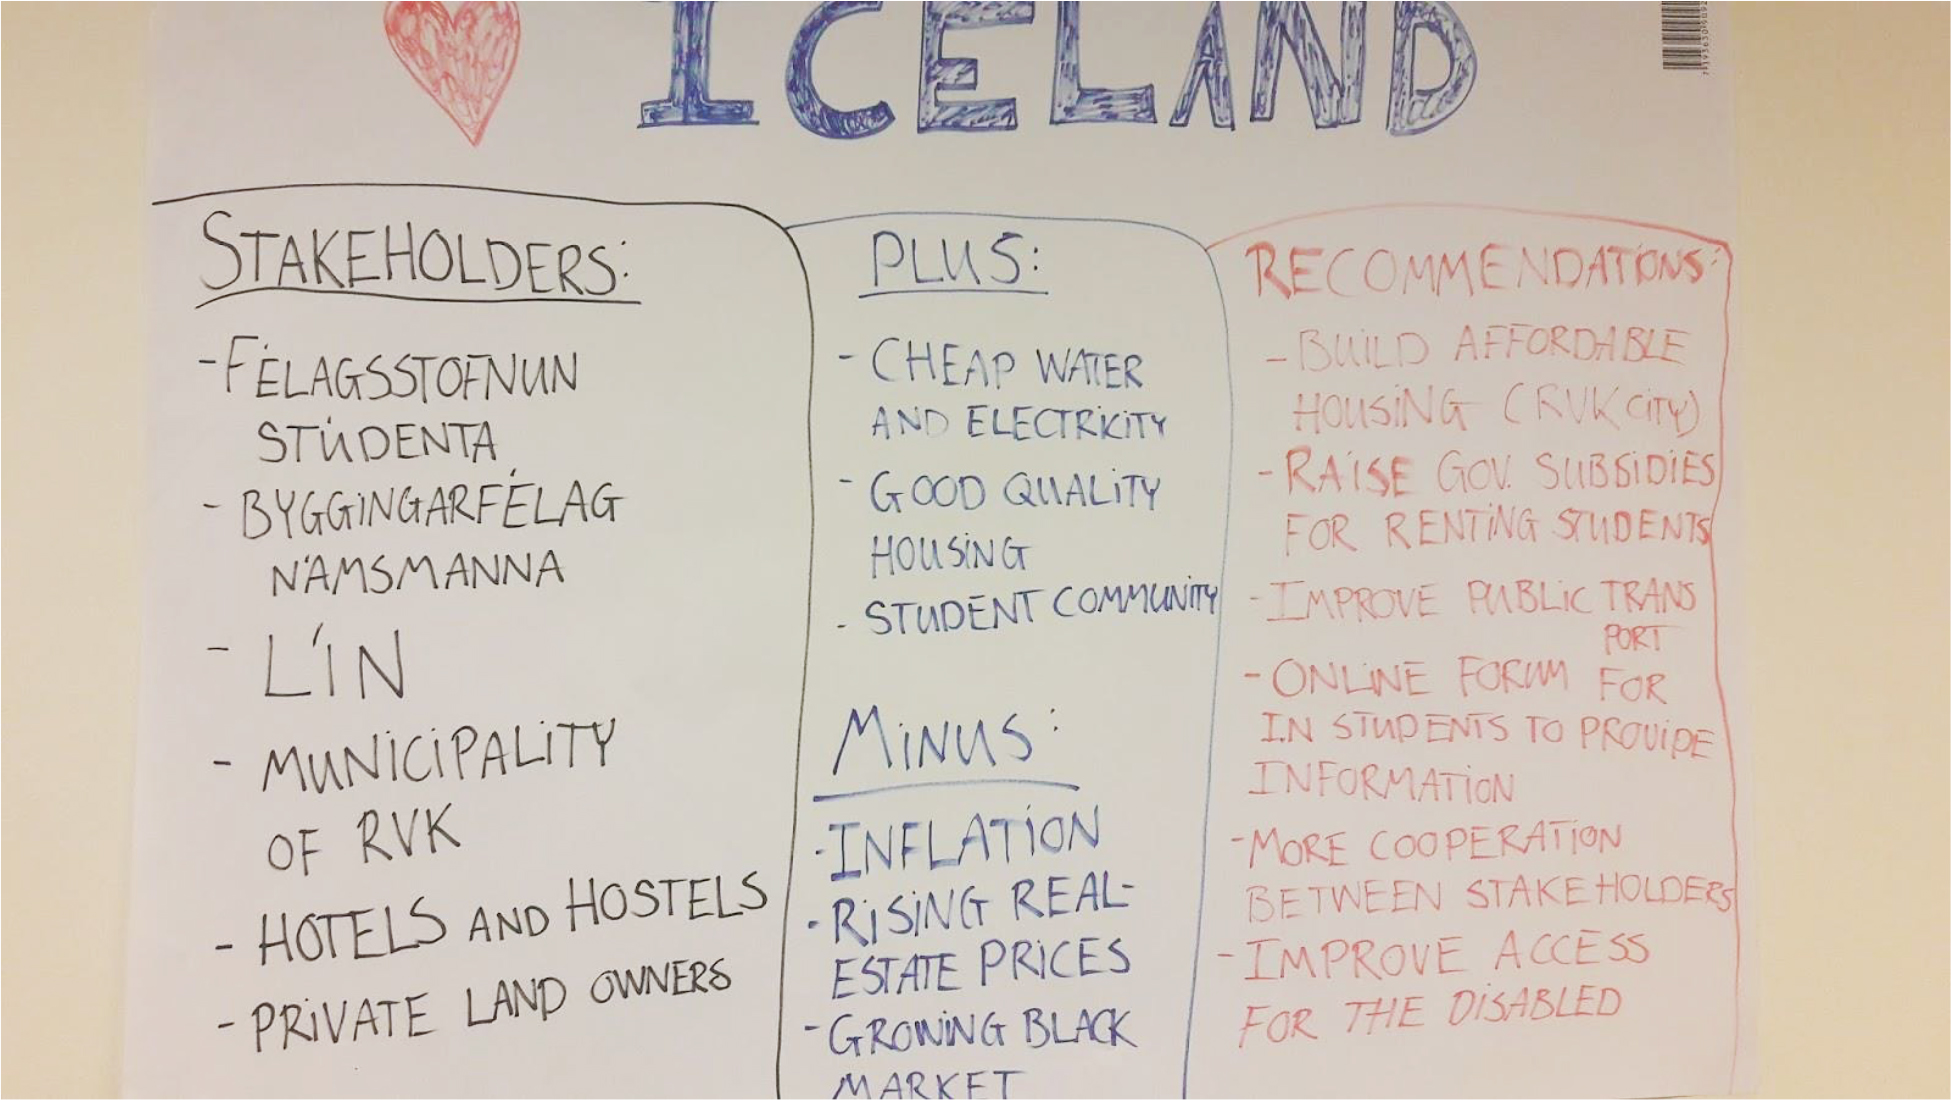 ICELAND
STAKEHOLDERS:
- FÉLAGSSTOFNUN
STÚDENTA
- BYGGINGARFÉLAG
NÁMSMANNA
- LÍN
- MUNICIPALITY
OF RVK
- HOTELS AND HOSTELS
- PRIVATE LAND OWNERS
PLUS:
- CHEAP WATER
AND ELECTRICITY
- GOOD QUALITY
HOUSING
- STUDENT COMMUNITY
MINUS:
- INFLATION
- RISING REAL-
ESTATE PRICES
- GROWING BLACK
MARKET
RECOMMENDATIONS:
- BUILD AFFORDABLE
HOUSING (RVK CITY)
- RAISE GOV. SUBSIDIES
FOR RENTING STUDENTS
- IMPROVE PUBLIC TRANS
PORT
- ONLINE FORUM FOR
IN STUDENTS TO PROVIDE
INFORMATION
- MORE COOPERATION
BETWEEN STAKEHOLDERS
- IMPROVE ACCESS
FOR THE DISABLED